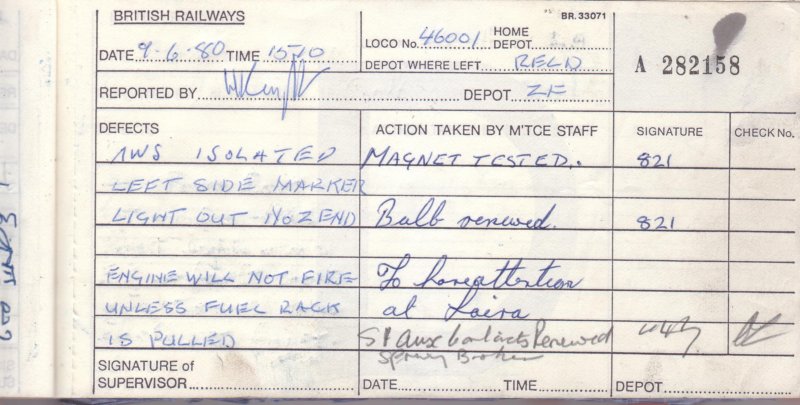 BRITISH RAILWAYS
BR. 33071
DATE 9-6-80 TIME 1510
LOCO No. 46001 HOME DEPOT
DEPOT WHERE LEFT RELD
A 282158
REPORTED BY DEPOT ZF
DEFECTS ACTION TAKEN BY M'TCE STAFF SIGNATURE CHECK No.
AWS ISOLATED MAGNET TESTED. 821
LEFT SIDE MARKER
LIGHT OUT No 2 END Bulb renewed. 821
ENGINE WILL NOT FIRE To have attention
UNLESS FUEL RACK at Laira
IS PULLED S1 Aux Contacts Renewed
Spring Broken
SIGNATURE of
SUPERVISOR DATE TIME DEPOT